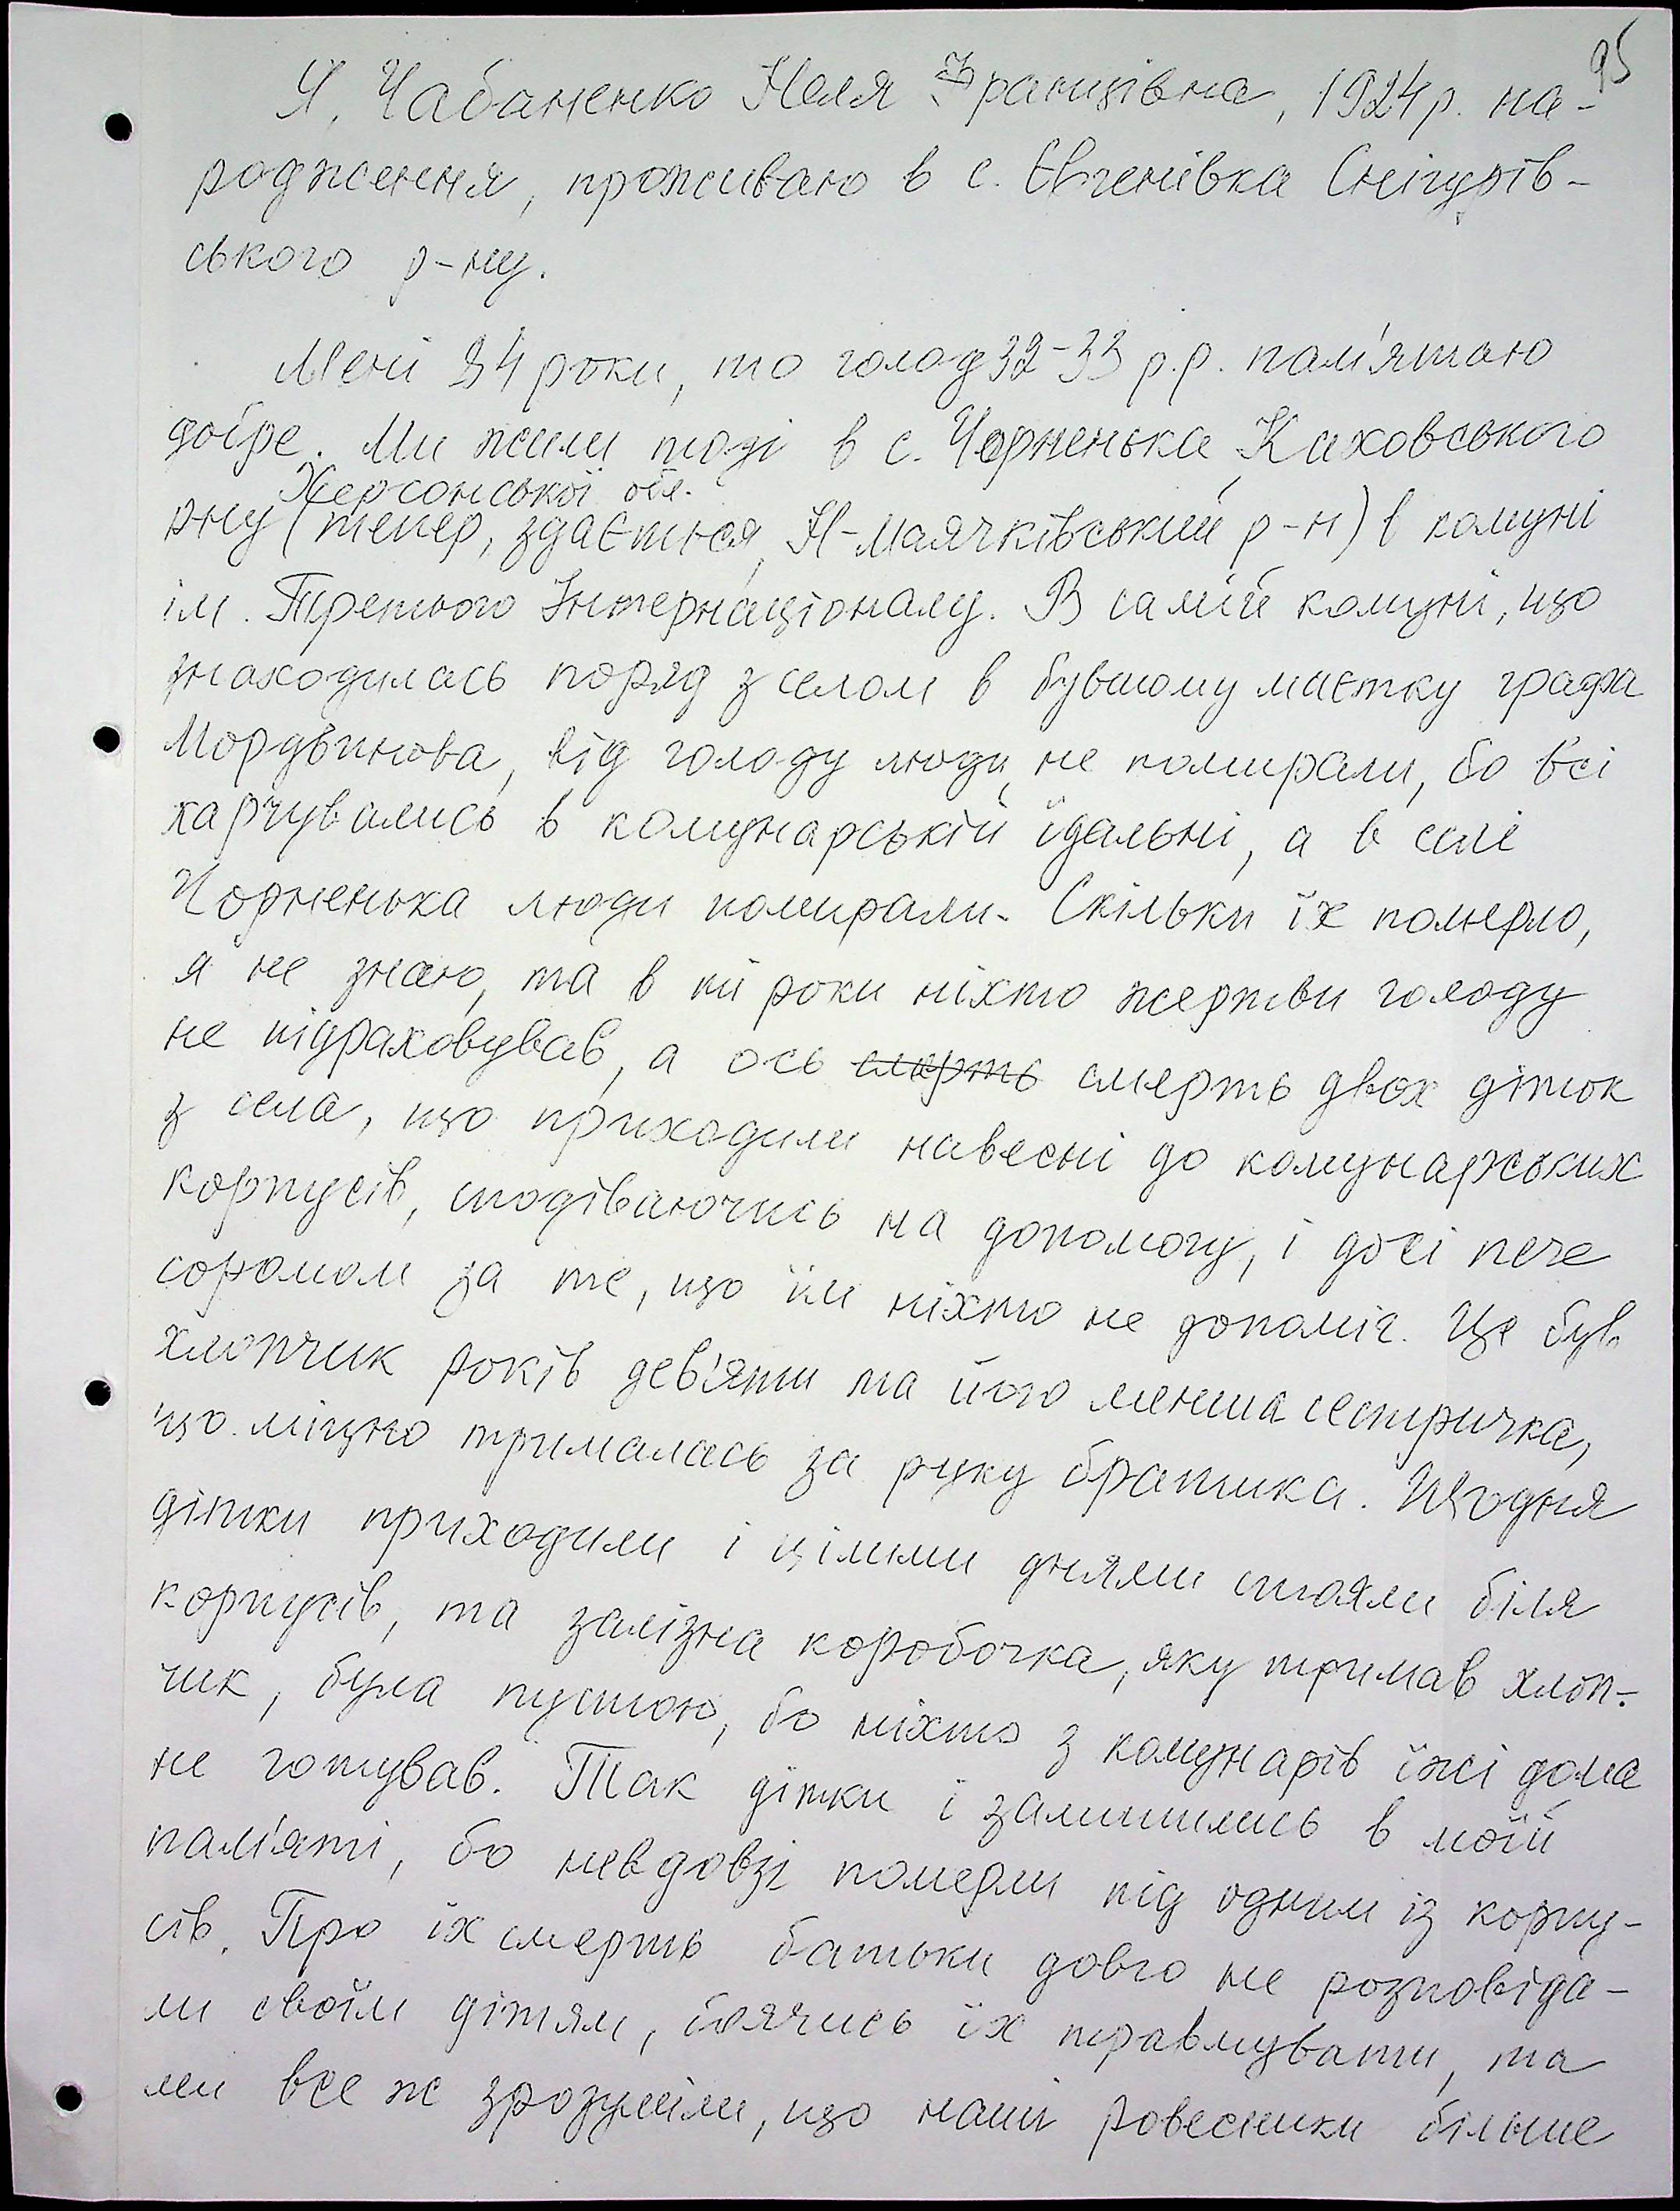 95
Я, Чабаненко Неля Францівна, 1924 р. на-
родження, проживаю в с. Євгенівка Снігурів-
ського р-ну.
Мені 84 роки, то голод 32-33 р.р. пам'ятаю
добре. Ми жили тоді в с. Чорненька Каховського
Херсонської обл.
рну (тепер, здається, Н-Маячківський р-н) в комуні
ім. Третього Інтернаціоналу. В самій комуні, що
знаходилась поряд з селом в бувшому маєтку графа
Мордвинова, від голоду люди не помирали, бо всі
харчувались в комунарській їдальні, а в селі
Чорненька люди помирали. Скільки їх померло,
я не знаю, та в ті роки ніхто жертви голоду
не підраховував, а ось смерть смерть двох діток
з села, що приходили навесні до комунарських
корпусів, сподіваючись на допомогу, і досі пече
соромом за те, що їм ніхто не допоміг. Це був
хлопчик років дев'яти та його менша сестричка,
що міцно трималась за руку братика. Щодня
дітки приходили і цілими днями стояли біля
корпусів, та залізна коробочка, яку тримав хлоп-
чик, була пустою, бо ніхто з комунарів їжі дома
не готував. Так дітки і залишились в моїй
пам'яті, бо невдовзі померли під одним із корпу-
сів. Про їх смерть батьки довго не розповіда-
ли своїм дітям, боячись їх травмувати, та
ми все ж зрозуміли, що наші ровесники більше